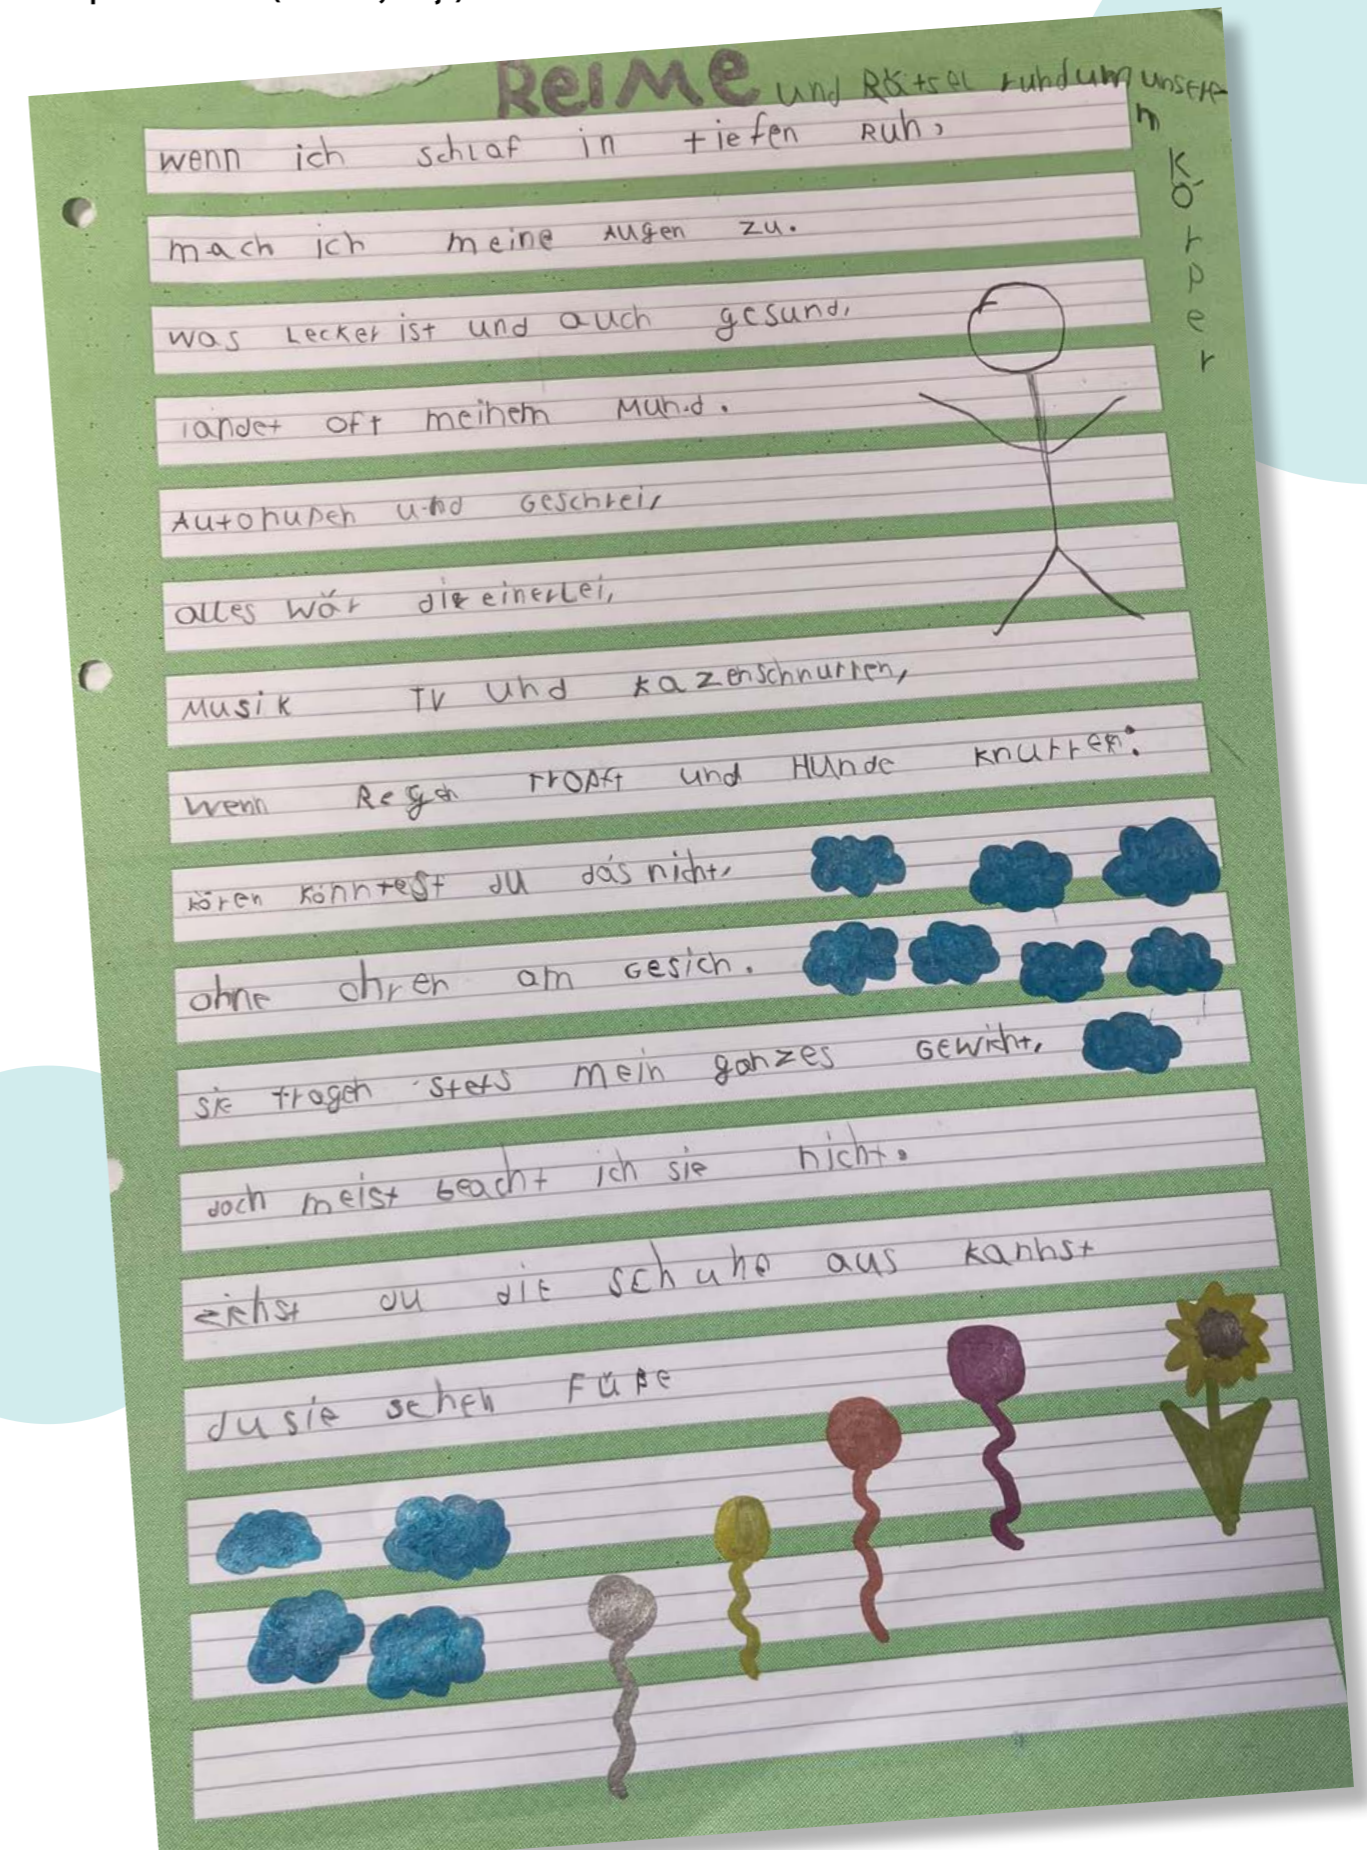 ReIMe und Rätsel rundum unserem Körper
wenn ich schlaf in tiefen Ruh,
mach ich meine Augen zu.
was Lecker ist und auch gesund,
landet oft meinem Mund.
Autohupen und Geschrei,
alles wär die einerlei,
Musik TV und kazenschnurren,
wenn Regen tropft und Hunde knurren:
hören könntest du das nicht,
ohne ohren am Gesich.
sie tragen stets mein ganzes Gewicht,
doch meist beacht ich sie nicht.
ziehst du die schuhe aus kannst
du sie sehen Füße